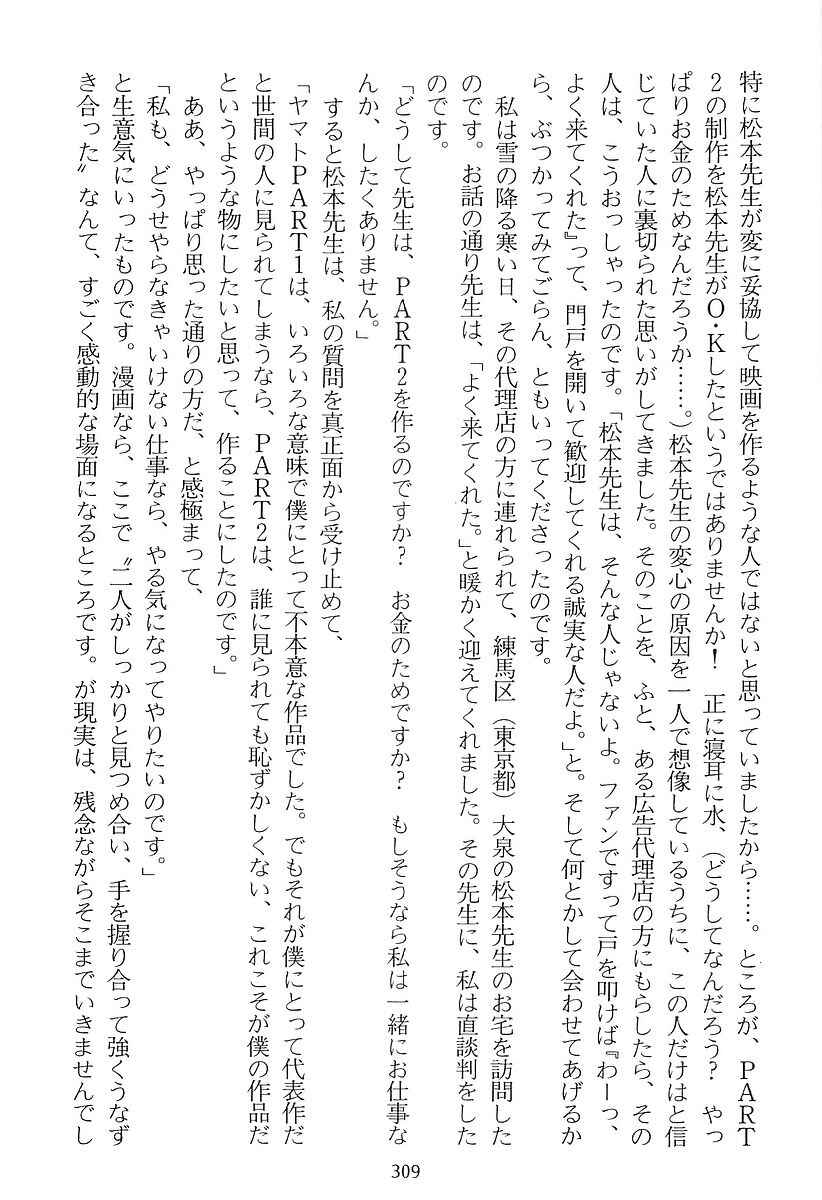 特に松本先生が変に妥協して映画を作るような人ではないと思っていましたから……。ところが、PART
2の制作を松本先生がO・Kしたというではありませんか！　正に寝耳に水、（どうしてなんだろう？　やっ
ぱりお金のためなんだろうか……。）松本先生の変心の原因を一人で想像しているうちに、この人だけはと信
じていた人に裏切られた思いがしてきました。そのことを、ふと、ある広告代理店の方にもらしたら、その
人は、こうおっしゃったのです。「松本先生は、そんな人じゃないよ。ファンですって戸を叩けば『わーっ、
よく来てくれた』って、門戸を開いて歓迎してくれる誠実な人だよ。」と。そして何とかして会わせてあげるか
ら、ぶつかってみてごらん、ともいってくださったのです。
私は雪の降る寒い日、その代理店の方に連れられて、練馬区（東京都）大泉の松本先生のお宅を訪問した
のです。お話の通り先生は、「よく来てくれた。」と暖かく迎えてくれました。その先生に、私は直談判をした
のです。
「どうして先生は、PART2を作るのですか？　お金のためですか？　もしそうなら私は一緒にお仕事な
んか、したくありません。」
すると松本先生は、私の質問を真正面から受け止めて、
「ヤマトPART1は、いろいろな意味で僕にとって不本意な作品でした。でもそれが僕にとって代表作だ
と世間の人に見られてしまうなら、PART2は、誰に見られても恥ずかしくない、これこそが僕の作品だ
というような物にしたいと思って、作ることにしたのです。」
ああ、やっぱり思った通りの方だ、と感極まって、
「私も、どうせやらなきゃいけない仕事なら、やる気になってやりたいのです。」
と生意気にいったものです。漫画なら、ここで〝二人がしっかりと見つめ合い、手を握り合って強くうなず
き合った〟なんて、すごく感動的な場面になるところです。が現実は、残念ながらそこまでいきませんでし
309